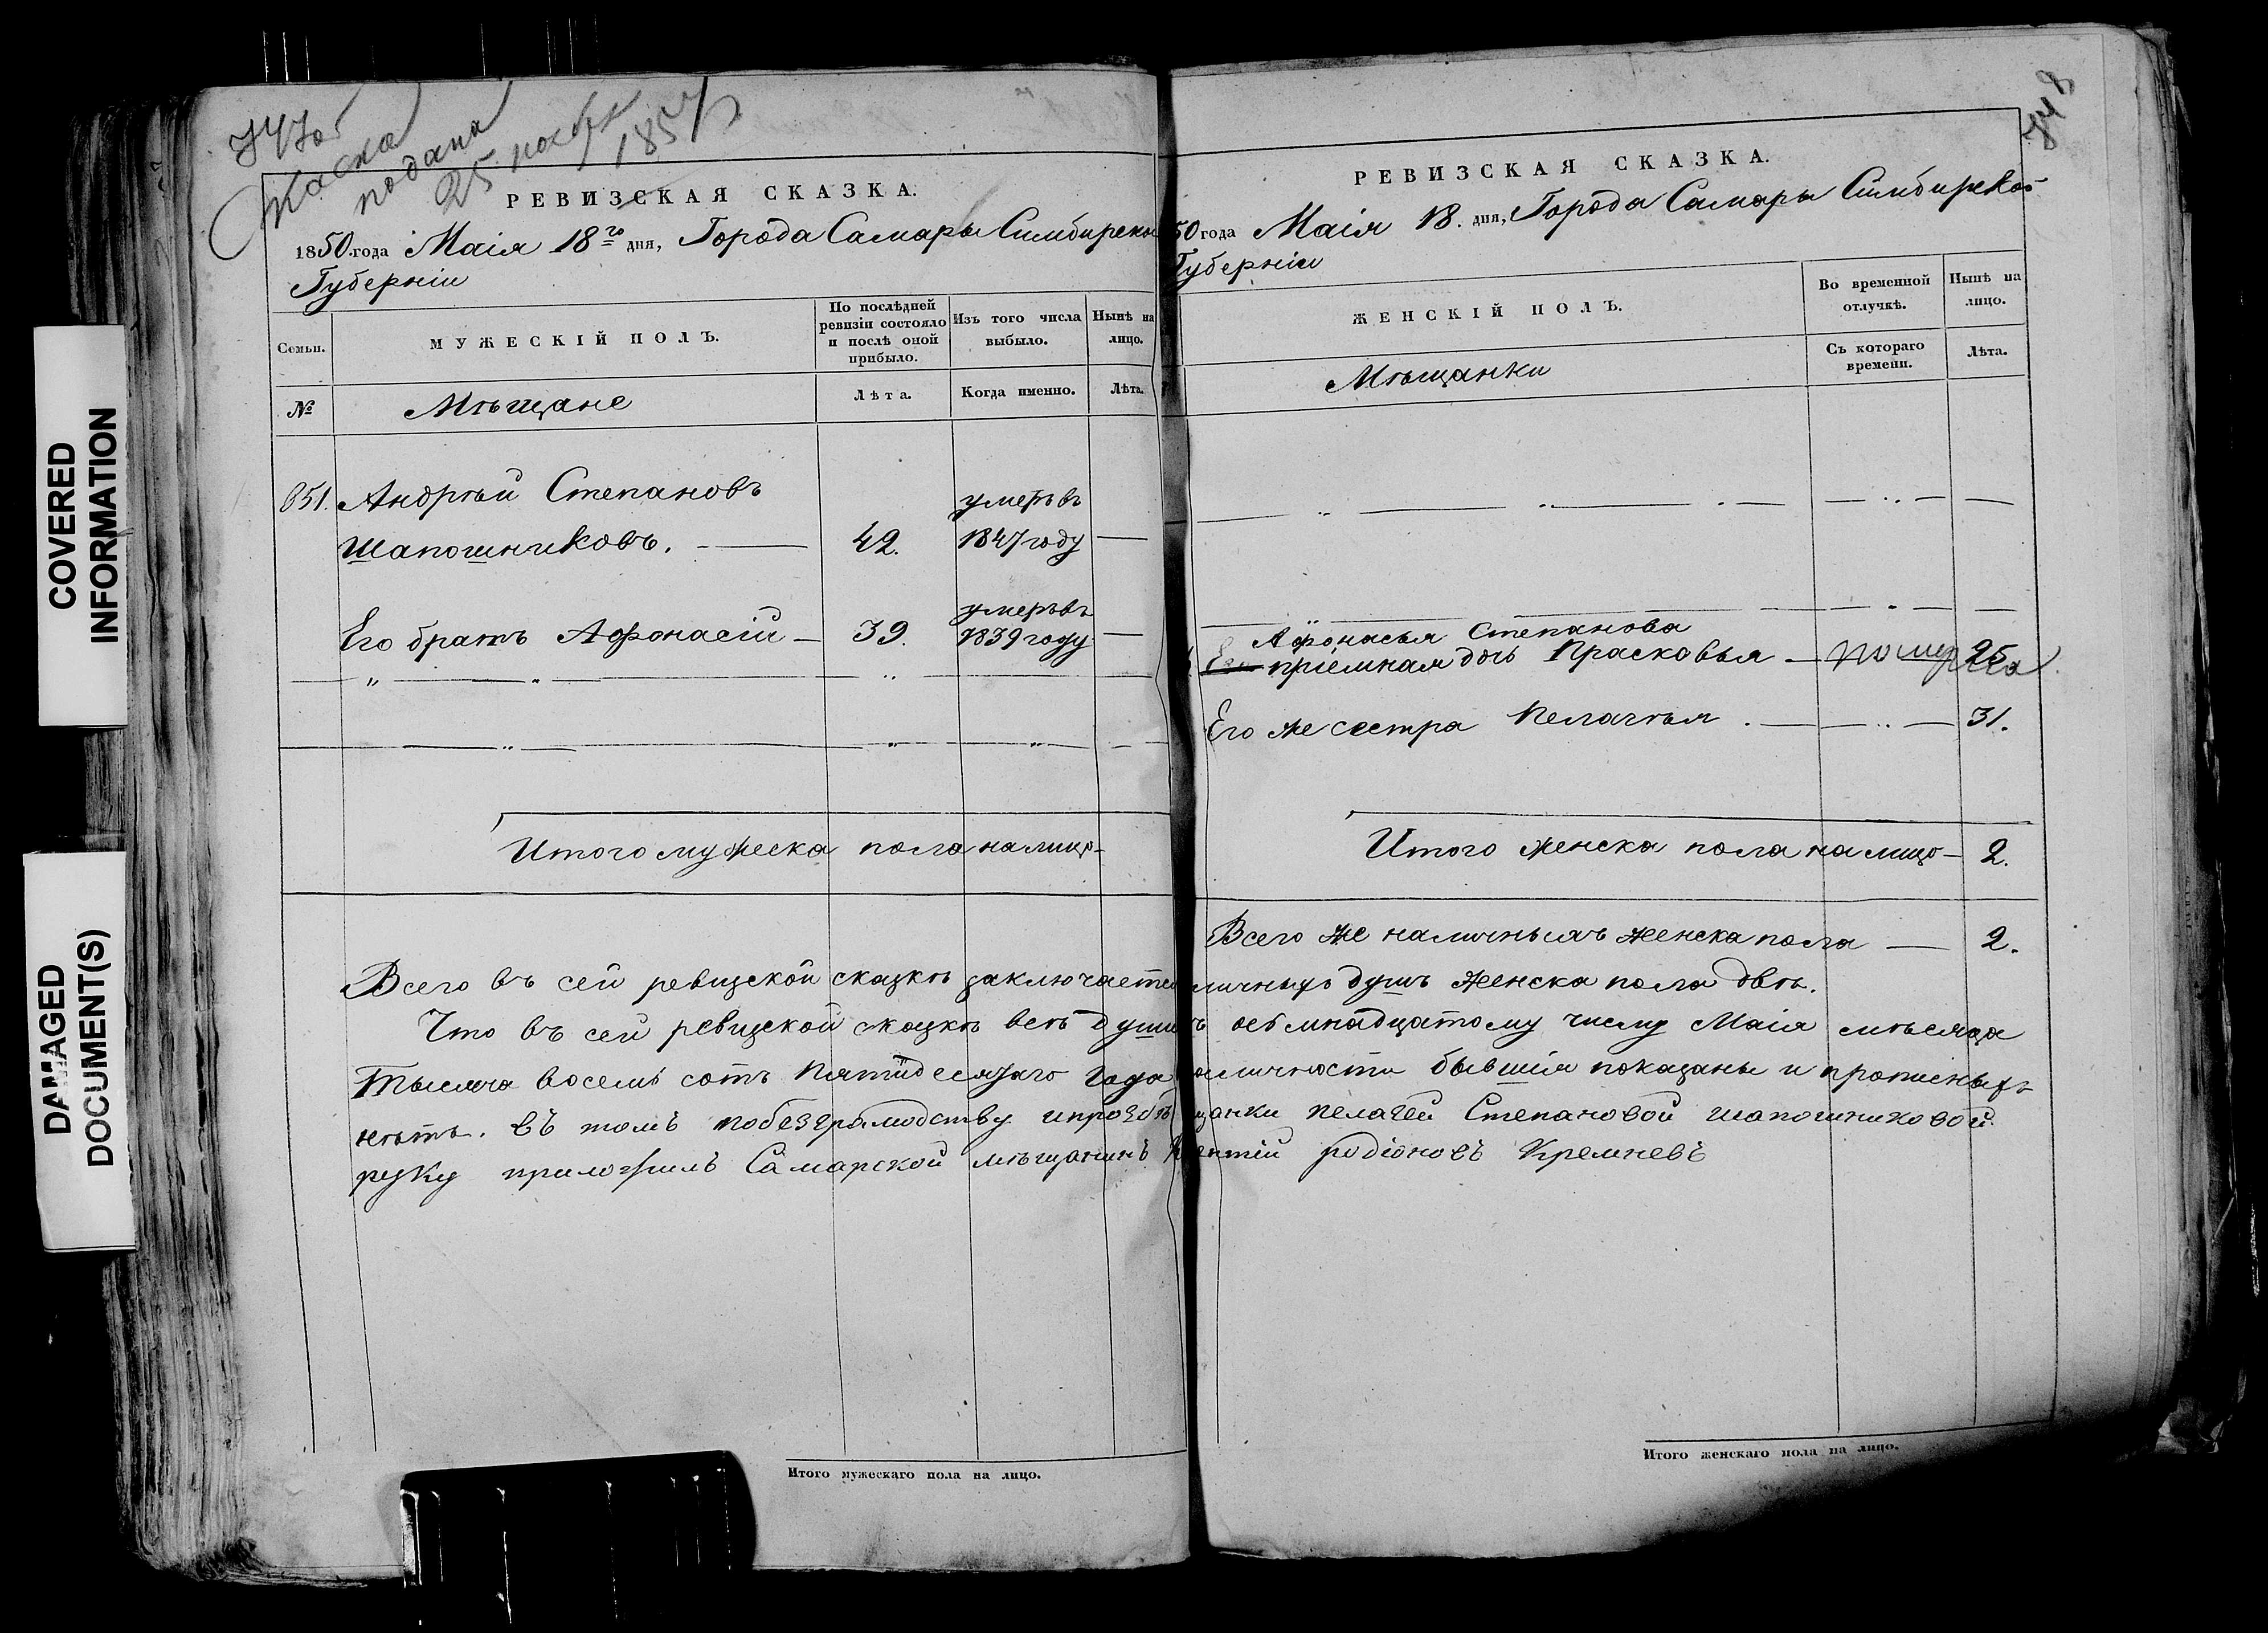 COVERED
INFORMATION
DAMAGED
DOCUMENT(S)
747об
Сказка
подана
25 ноябр
185
РЕВИЗСКАЯ СКАЗКА.
1850 года Маія 18го дня, Города Самары Симбирско
Губерніи
Семьи.
МУЖЕСКІЙ ПОЛЪ.
По послѣдней ревизіи состояло и послѣ оной прибыло.
Изъ того числа выбыло.
Нынѣ на лицо.
№
Мѣщане
Лѣта.
Когда именно.
Лѣта.
851. Андрѣй Степановъ
Шапошниковъ. — 42. умеръ въ 1847 году —
Его братъ Афонасій — 39. умеръ въ 1839 году —
Итого мужеска пола налицо —
748
РЕВИЗСКАЯ СКАЗКА.
50 года Маія 18. дня, Города Самары Симбирской
Губерніи
ЖЕНСКІЙ ПОЛЪ.
Во временной отлучкѣ.
Нынѣ на лицо.
Мѣщанки
Съ котораго времени.
Лѣта.
Афонасья Степанова
Его пріемная дочь Прасковья — померла 25
Его же сестра Пелагѣя . — 31.
Итого женска пола налицо — 2.
Всего же наличныхъ женска пола — 2.
Всего въ сей ревизской сказкѣ заключаетс личныхъ душъ женска пола двѣ.
Что въ сей ревизской сказкѣ всѣ души ъ осьмнадцатому числу Маія мѣсяца
Тысяча восемь сотъ Пятидесятаго года аличности бывшія показаны и прописныхъ
нѣтъ. въ томъ побезграмотству ипрозбѣ щанки Пелагеи Степановой шапошниковой
руку приложилъ Самарской мѣщанинъ ентій родіоновъ Кремневъ
Итого мужескаго пола на лицо.
Итого женскаго пола на лицо.